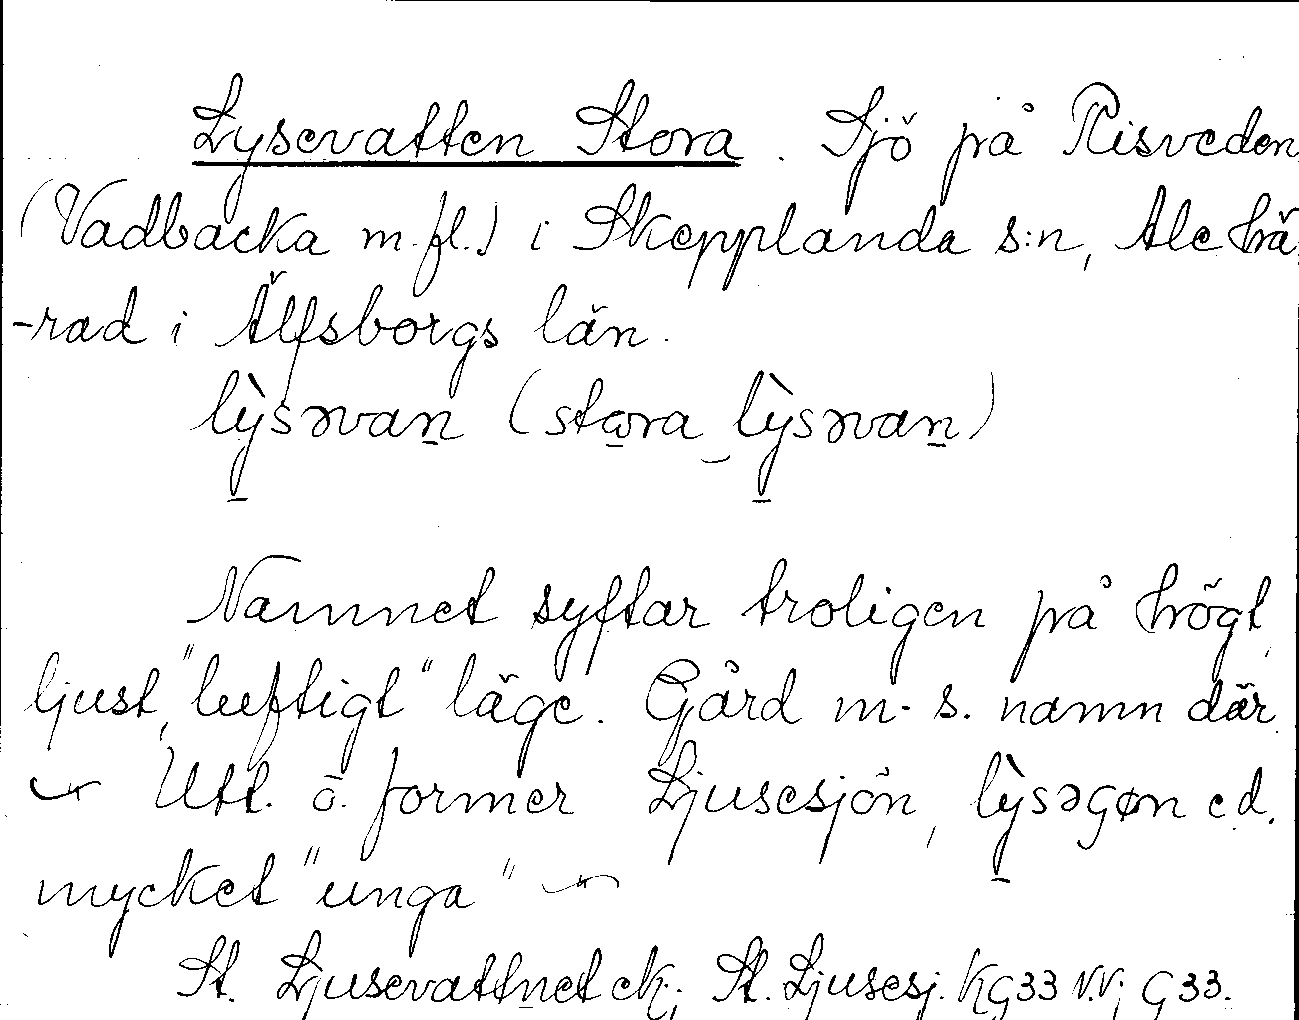 Lysevatten Stora. Sjö på Risveden
(Vadbacka m.fl.) i Skepplanda s:n, Ale hä
-rad i Älfsborgs län.
lỳsəvan (stωra lỳsəvan)
Namnet syftar troligen på högt,
ljust, "luftigt" läge. Gård m. s. namn där.
Utt. o. former Ljusesjön, lỳsəgøn e d.
mycket "unga"
St. Ljusevattnet ek; St. Ljusesj. KG33 N.V; G33.